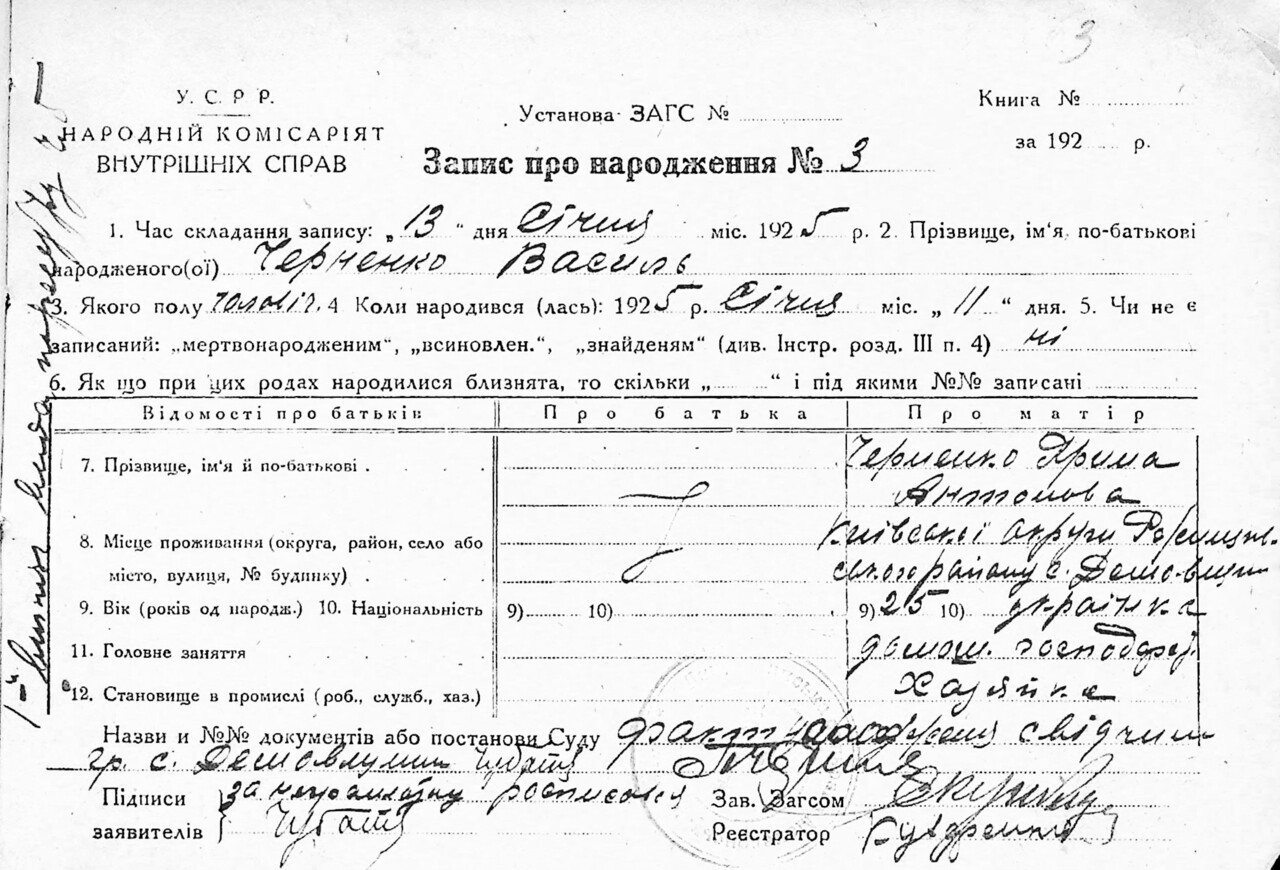 3
У. С. Р Р.
НАРОДНІЙ КОМІСАРІЯТ
ВНУТРІШНІХ СПРАВ
Установа ЗАГС №
Книга №
за 192 р.
Запис про народження № 3
1. Час складання запису: „13“ дня Січня міс. 1925 р. 2. Прізвище, ім'я по-батькові
народженого(ої) Черненко Василь
3. Якого полу чоловіч. 4 Коли народився (лась): 1925 р. Січня міс. „11“ дня. 5. Чи не є
записаний: „мертвонародженим“, „всиновлен.“, „знайденям“ (див. Інстр. розд. III п. 4) ні
6. Як що при цих родах народилися близнята, то скільки „ “ і під якими №№ записані
Відомості про батьків Про батька Про матір
7. Прізвище, ім'я й по-батькові . . . . Черненко Ярина
Антонова
8. Місце проживання (округа, район, село або Київської округи
місто, вулиця, № будинку) . . . . району с.
9. Вік (років од народж.) 10. Національність 9) 10) 9) 25 10) українка
11. Головне заняття . . . . домаш.
12. Становище в промислі (роб., служб., хаз.) Хазяйка
Назви и №№ документів або постанови Суду факт свідчить
гр. с.
Підписи за
заявителів
Зав. Загсом
Реєстратор